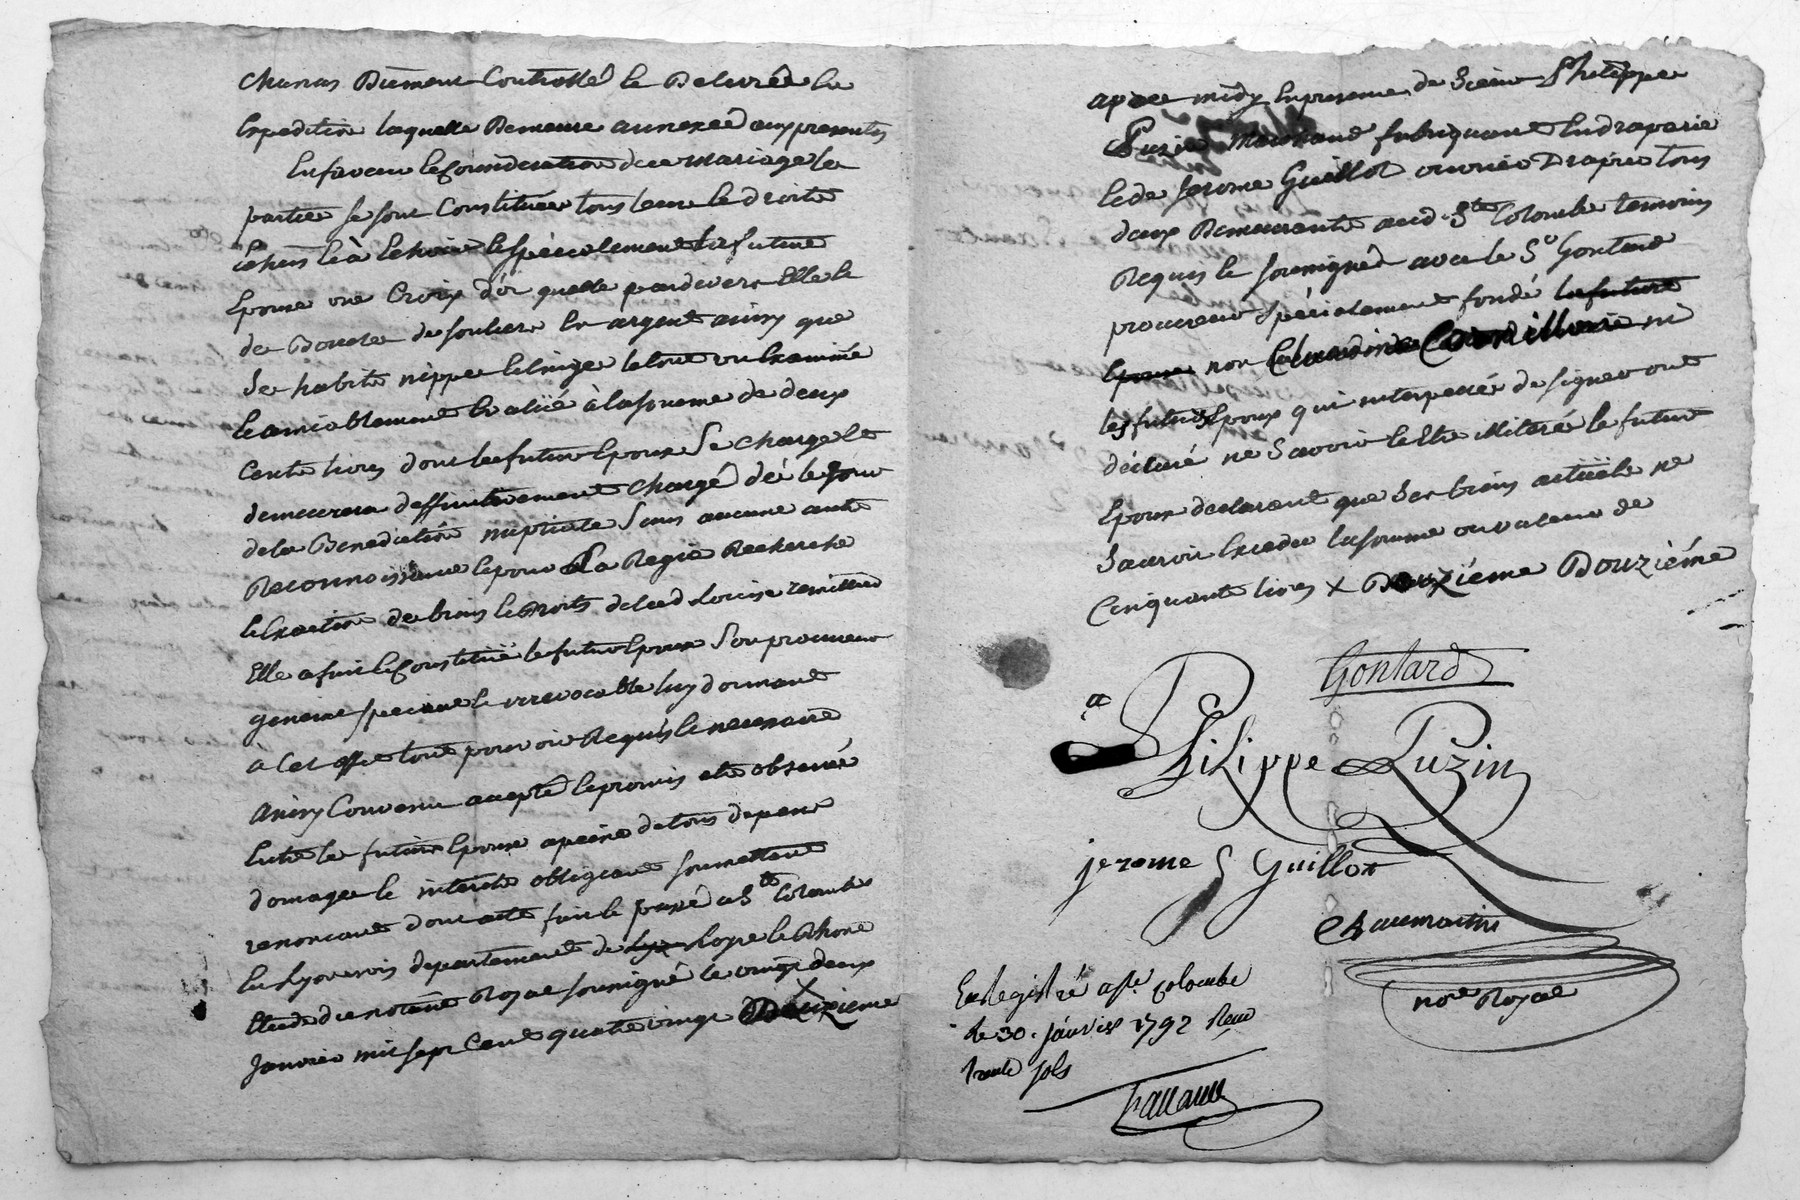 Chanas Düement Controllé le Delivrée la
Expedition laquelle Demeure annexée aux presentes
En faveur & Consideration de ce Mariage les
parties se sont Constituées tous leurs & droits
échus & à echoir & Spécialement la future
Epouse une Croix d'or quelle pardevers Elle &
des Boucles de souliers En argent ainsy que
Ses habits nippes & linges le tout vu Examiné
& amiablement Evalüé à la somme de deux
Cents livres dont le futur Epoux Se charge &
demeurera deffinitivement Chargé dès le jour
de la Benediction nuptiale Sans aucune autre
Reconnoissance & pour La Regie Recherche
& Exaction des biens & Droits de lad Louise remillieu
Elle a fait & Constitué le futur Epoux Son procureur
general special & irrevocable luy donnant
à Cet effet tout pouvoir Requis & necessaire
Ainsy Convenu accepté & promis etre observé
Entre les futurs Epoux a peine de tous depens
domages & interets obligeant soumettant
renonceant dont acte fait & passé a Ste Colombe
En Lyonnois departement de Lyo Loire & Rhone
Etude du notaire Royal soussigné le vingt deux
Janvier mil sept Cent quatre vingt Deuzieme
apres midy En presence de Sieur Philippe
Luzin Marchand fabriquant En draperie
& de Jerome Guillot ouvrier Drapier tous
deux Demeurants aud Ste Colombe temoins
Requis & soussignés avec le Sr Gontard
procureur spécialement fondé la future
Epouse non Claudine ni
les futurs Epoux qui interpellés de signer ont
déclaré ne Savoir & Etre illiterés le futur
Epoux declarant que Ses biens actüels ne
Sauroit Exceder la somme ou valeur de
Cinquante livres x Douzieme Douziéme
Gontard
a
Philippe Luzin
jerome Guillot
Chaumartin
nore Royal
Enregistré a ste colombe
le 30. janvier 1792 Reçu
trente sols